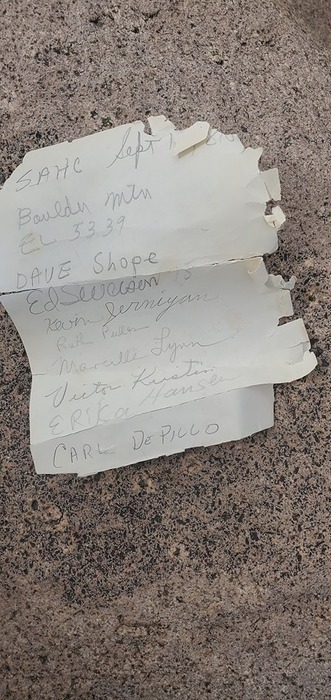 SAHC Sept 1
Boulder Mtn
EL 3339
DAVE Shope
Ed Severson
Kevin Jernigan
Ruth
Marcelle Lynn
Victor Kristen
ERIKa Hansen
CARL DePILLO